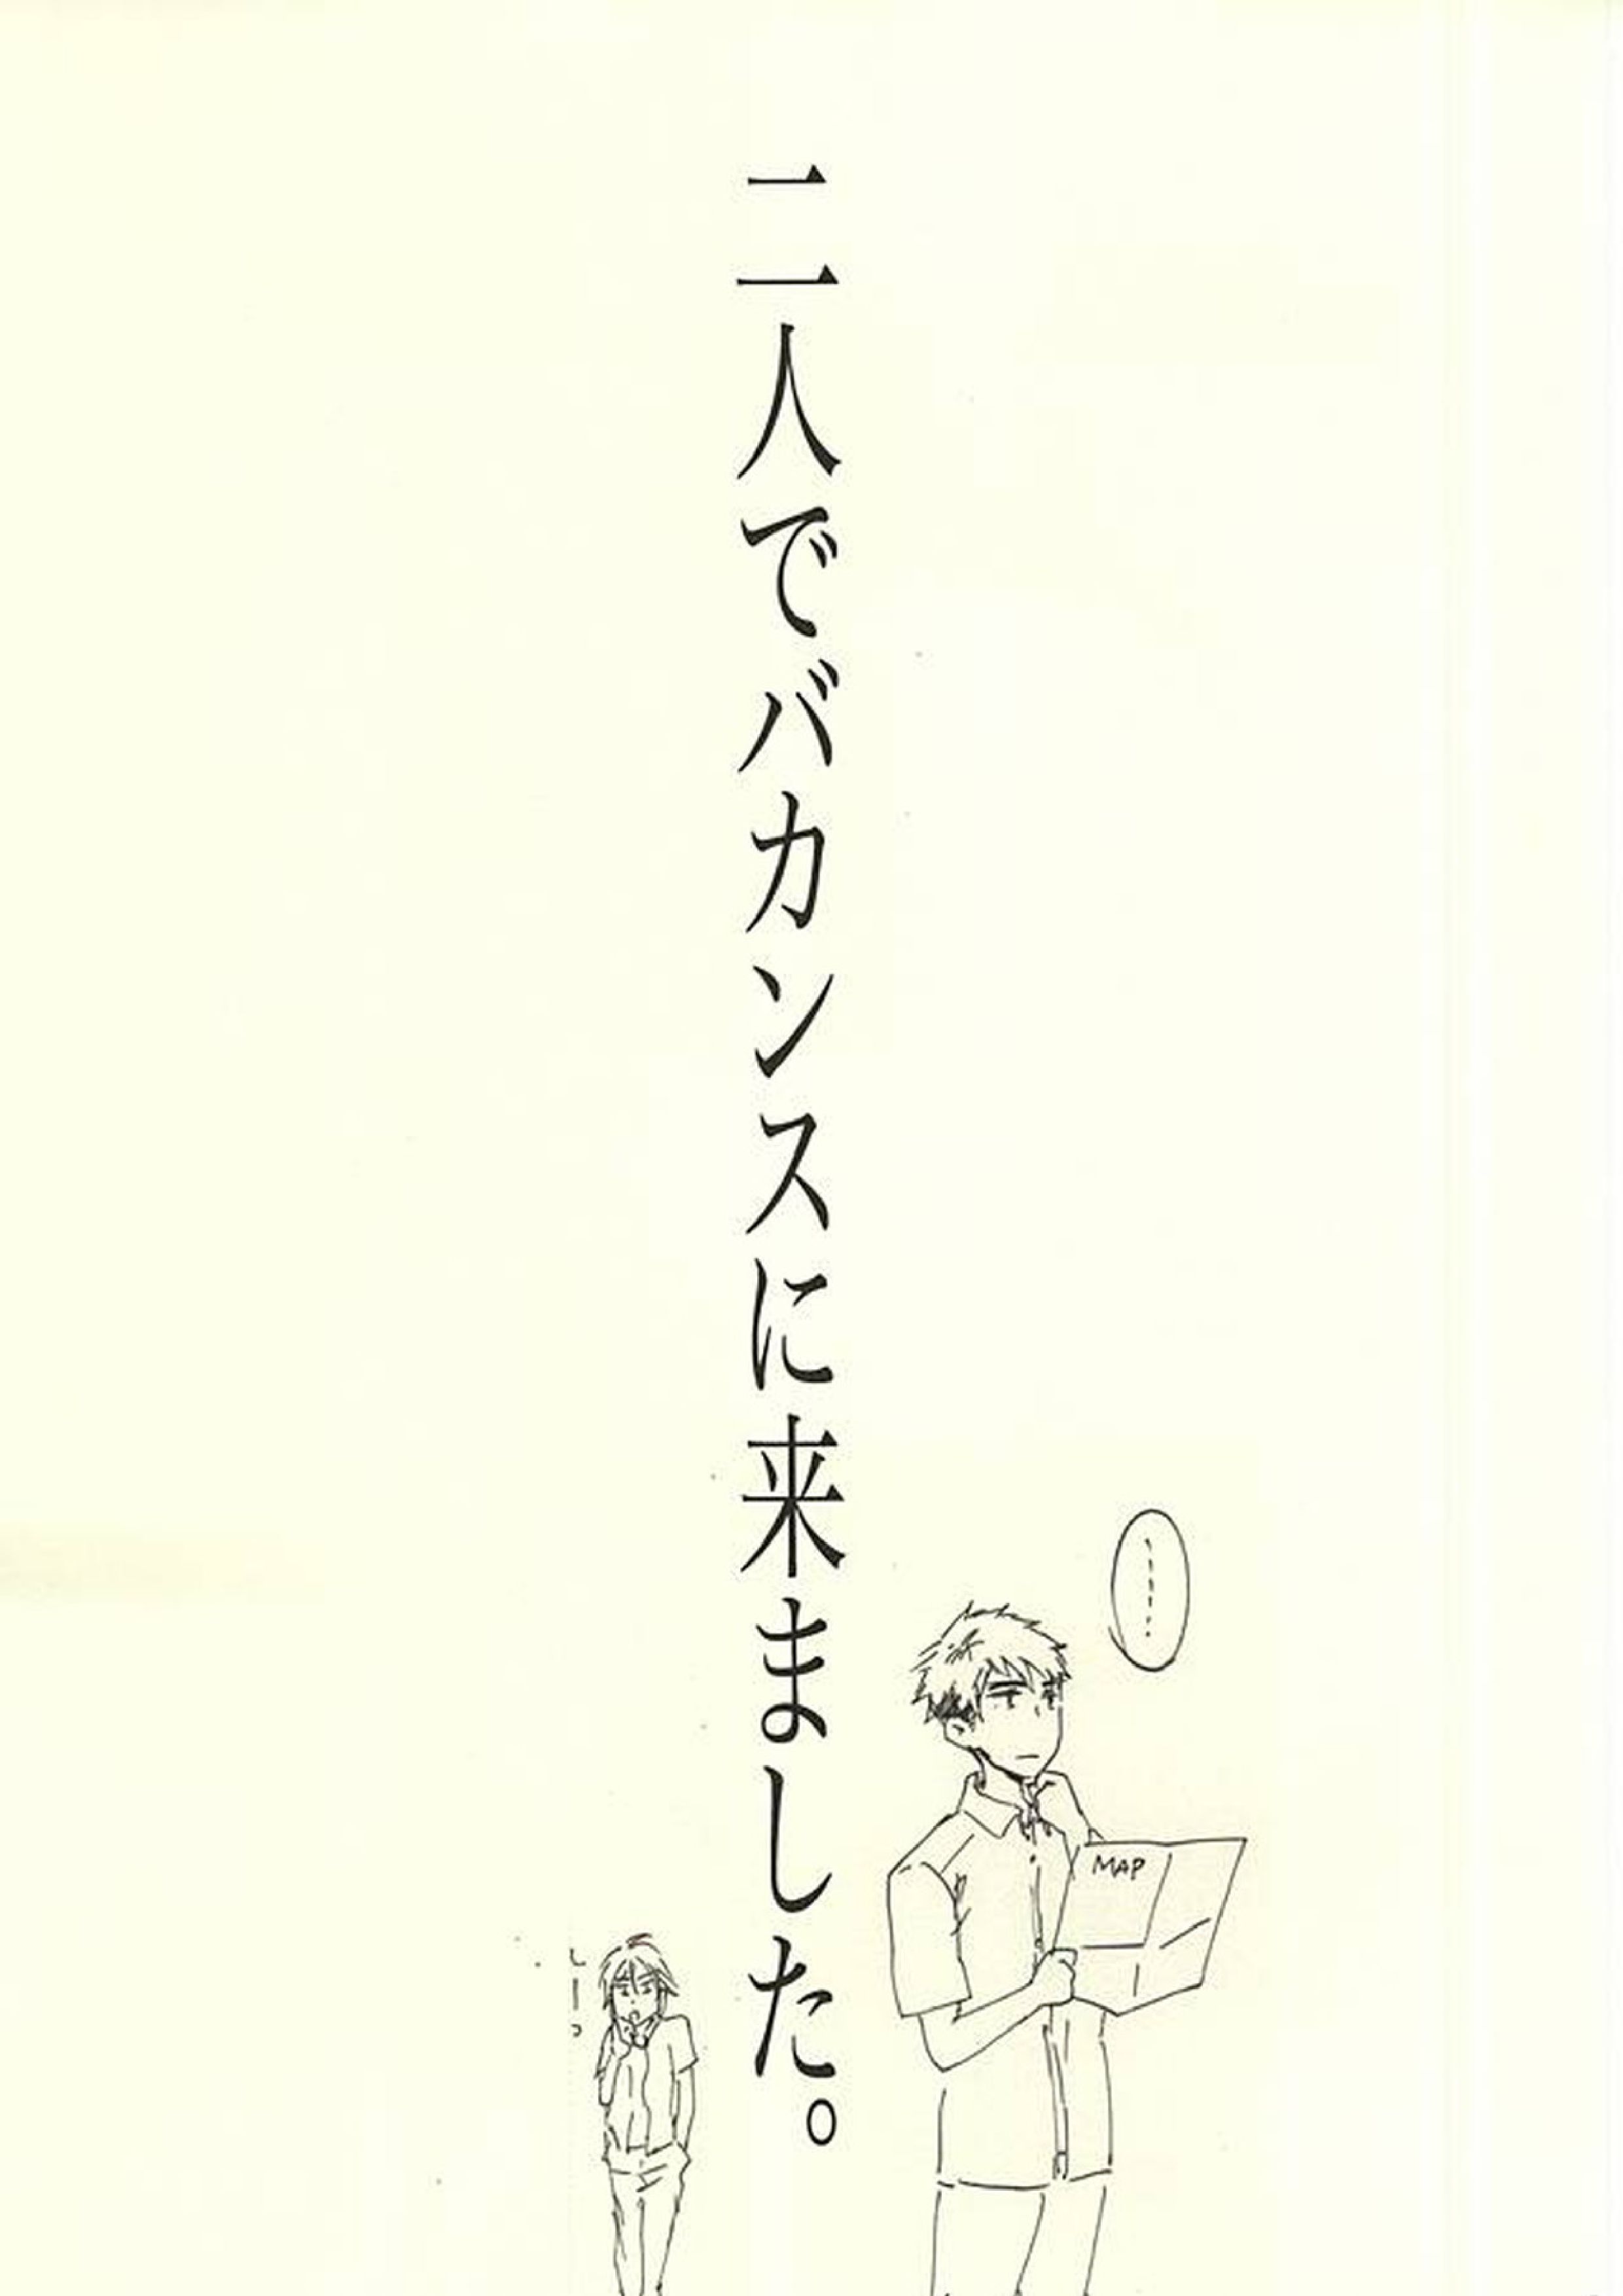 二人でバカンスに来ました。
……
MAP
しーっ